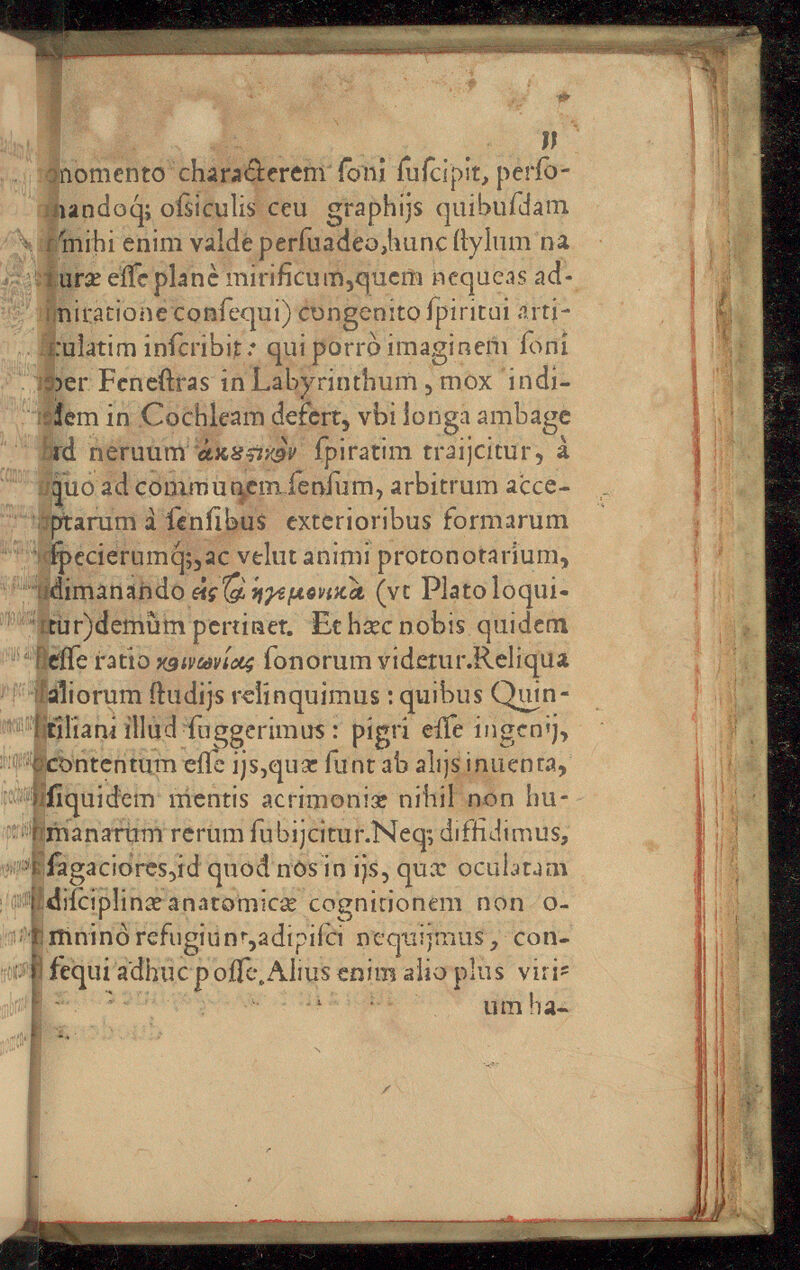 momento characterem soni suscipit, perso-
nandoq; ossiculis ceu graphijs quibusdam
mihi enim valde persuadeo, hunc stylum na
turæ esse planè mirificum, quem nequeas ad-
miratione consequi) congenito spiritui arti-
culatim inscribit: qui porrò imaginem soni
per Fenestras in Labyrinthum, mox indi-
dem in Cochleam defert, vbi longa ambage
ad neruum ἀκουστικὸν spiratim traijcitur, à
quo ad communem sensum, arbitrum acce-
ptarum à sensibus exterioribus formarum
specierumq;, ac velut animi protonotarium,
dimanando εἰς τὰ ἡγεμονικὰ (vt Plato loqui-
tur) demùm pertinet. Et hæc nobis quidem
esse ratio κοινωνίας sonorum videtur. Reliqua
aliorum studijs relinquimus: quibus Quin-
tiliani illud suggerimus: pigri esse ingenij,
contentum esse ijs, quæ sunt ab alijs inuenta,
siquidem mentis acrimoniæ nihil non hu-
manarum rerum subijcitur. Neq; diffidimus,
sagaciores, id quod nos in ijs, quæ oculatam
disciplinæ anatomicæ cognitionem non o-
mninò refugiunt, adipisci nequijmus, con-
sequi adhuc posse. Alius enim alio plus viri-
um ha-